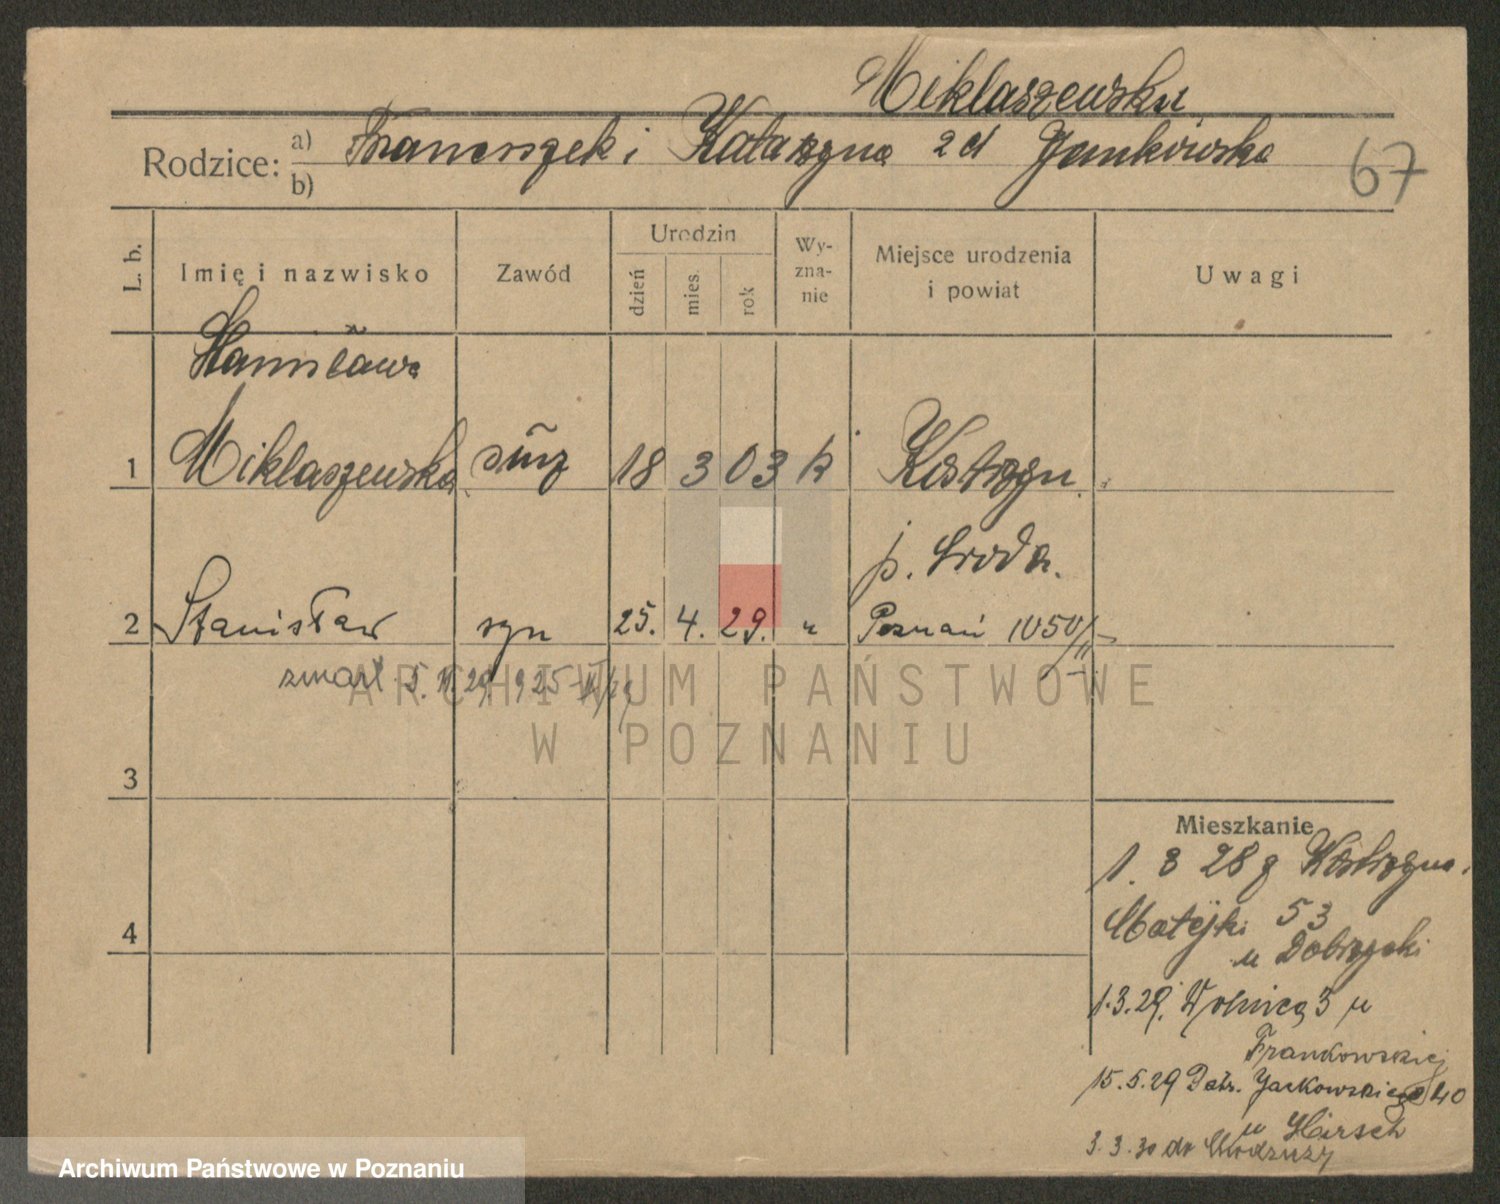 Miklaszewska
Rodzice: a) Franciszek i Katarzyna z d Jankowska
b)
67
L. b. Imię i nazwisko Zawód Urodzin dzień mies. rok Wy-zna-nie Miejsce urodzenia i powiat Uwagi
Stanisława
1 Miklaszewska służ 18 3 03 k Kostrzyn
p. Środa.
2 Stanisław syn 25. 4. 29. " Poznań 1050/II
zmarł 5. 29. 925
3
Mieszkanie
1. 8 28 z Kostrzyna.
4
Matejki 53
u Dobrzycki
1.3.29. Wolnica 3 u
Frankowskiej
15.5.29 Patr. Jackowskiego 40
u Hirsch
3.3.30 do
ARCHIWUM PAŃSTWOWE
W POZNANIU
Archiwum Państwowe w Poznaniu